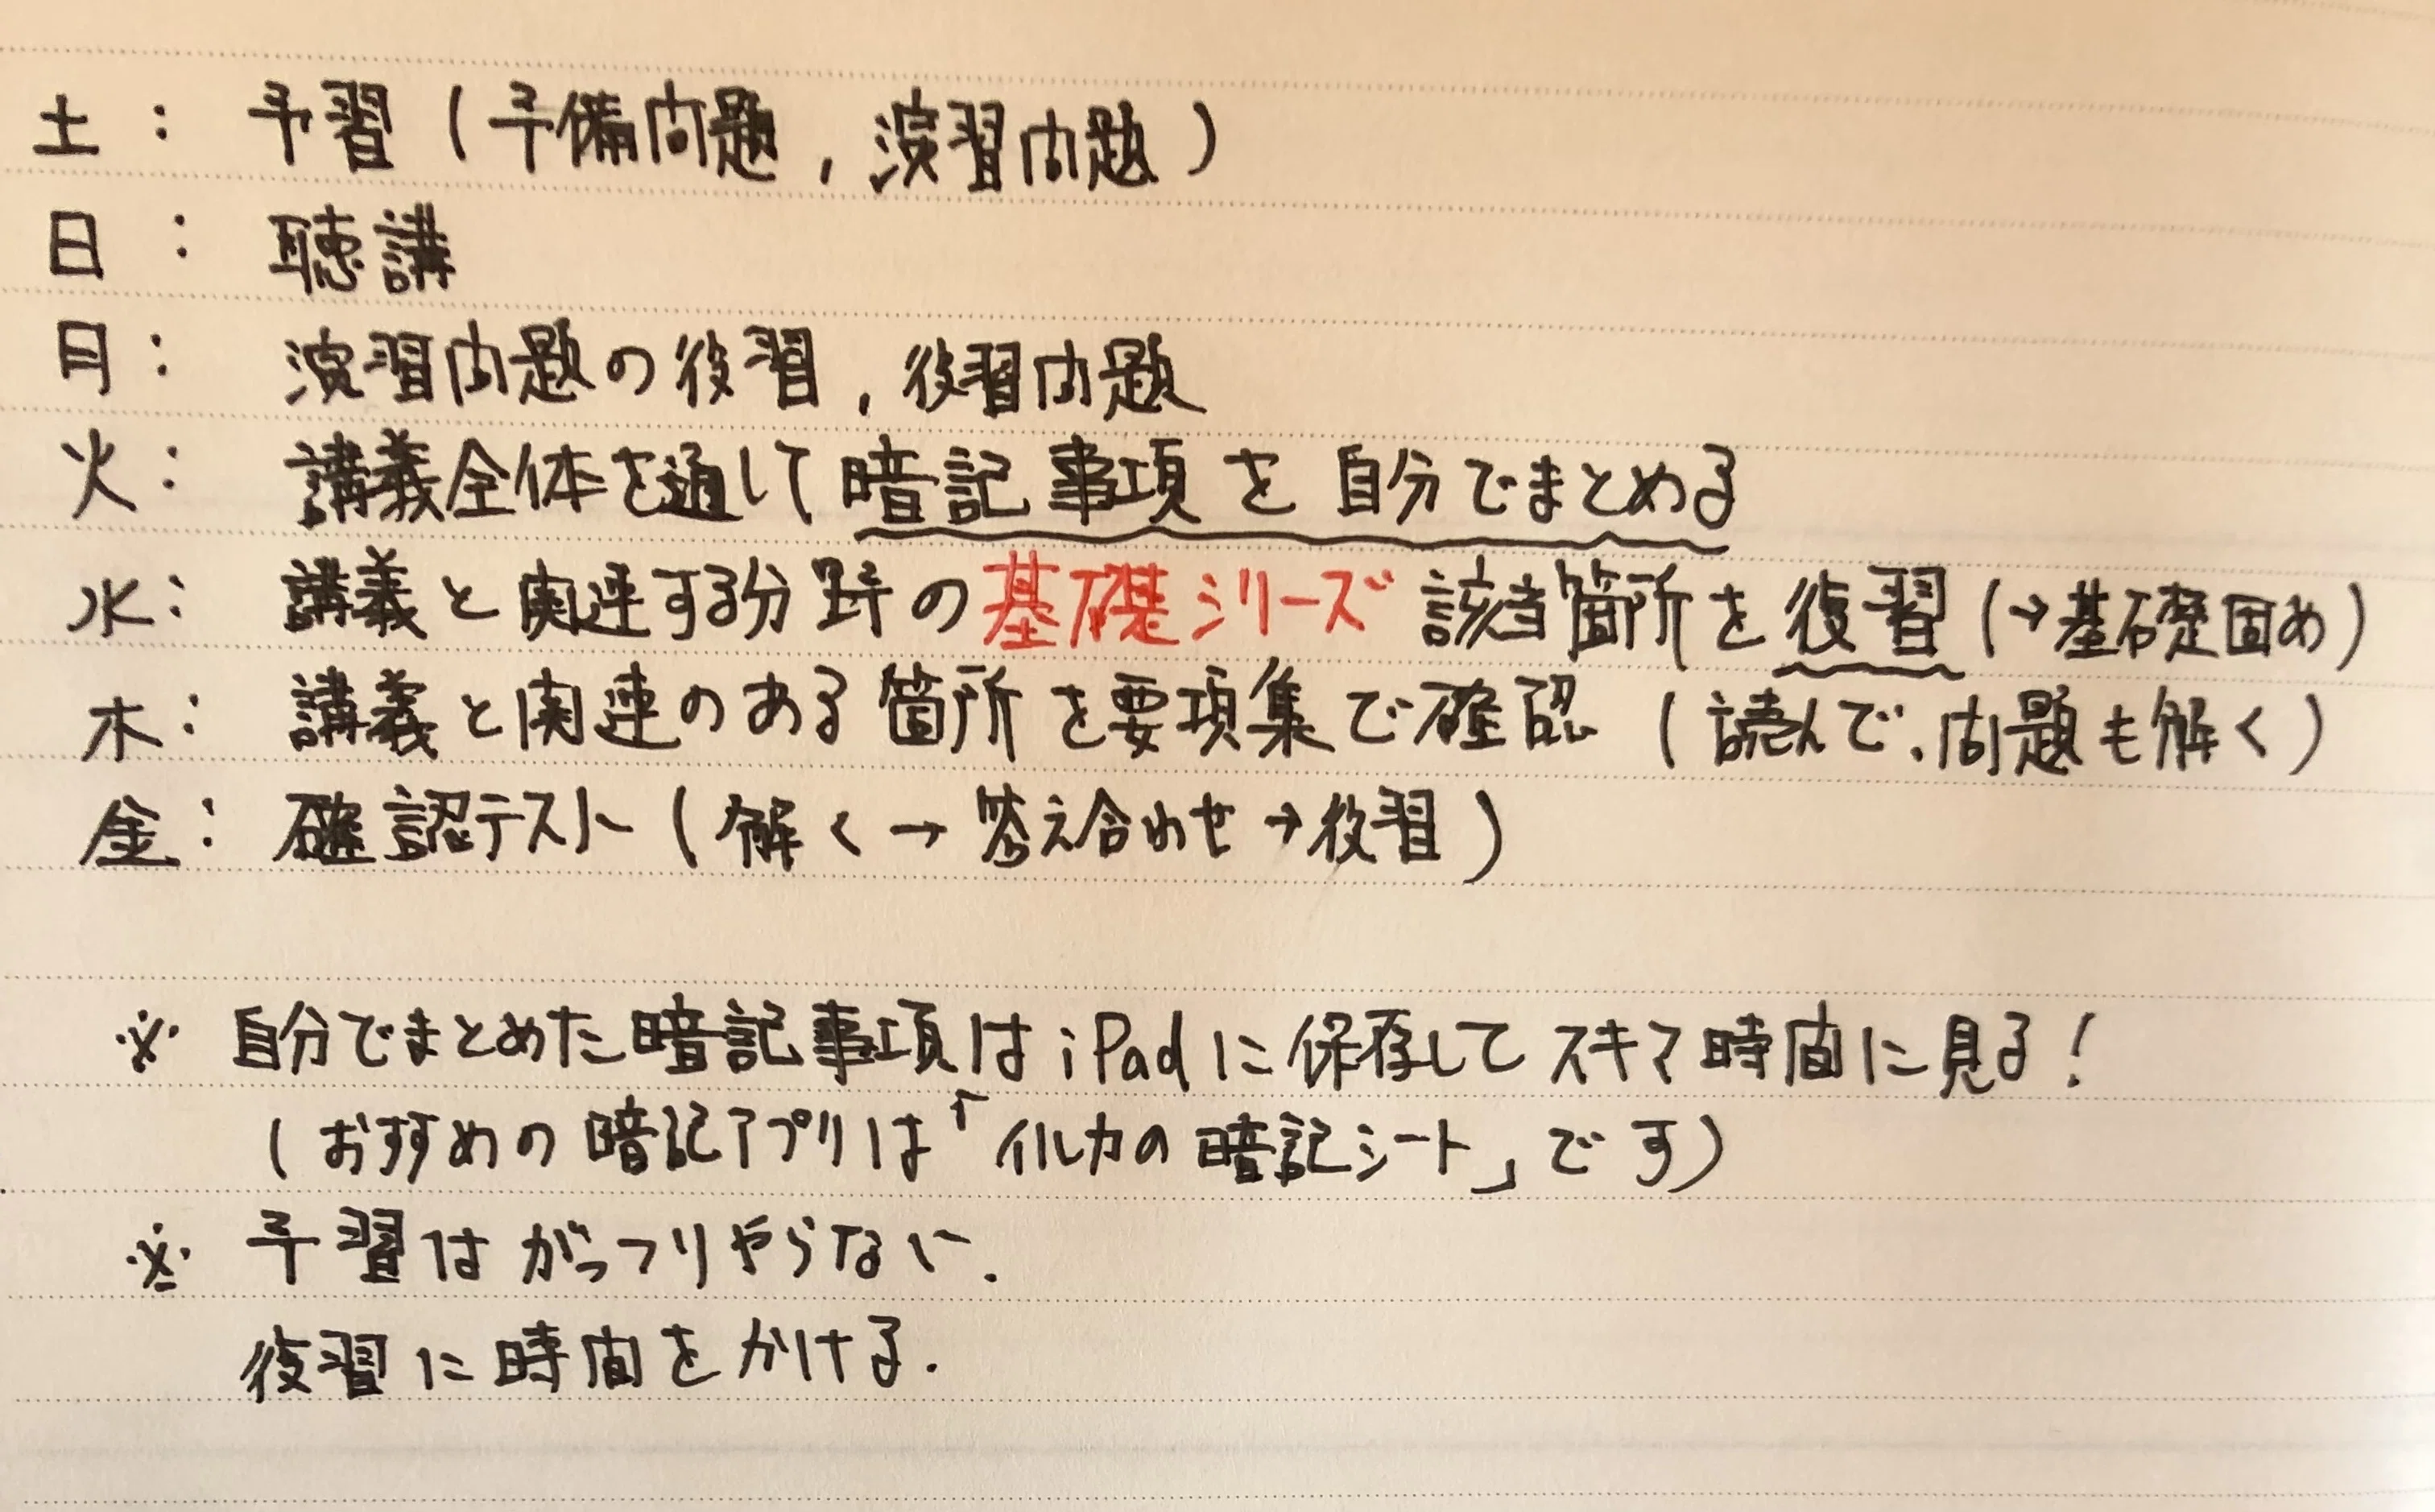 土：予習（予備問題，演習問題）
日：聴講
月：演習問題の復習，復習問題
火：講義全体を通して暗記事項を自分でまとめる
水：講義と関連する分野の基礎シリーズ該当箇所を復習（→基礎固め）
木：講義と関連のある箇所を要項集で確認（読んで、問題も解く）
金：確認テスト（解く→答え合わせ→復習）
※自分でまとめた暗記事項はiPadに保存してスキマ時間に見る！
（おすすめの暗記アプリは「イルカの暗記シート」です）
※予習はがっつりやらない．
復習に時間をかける．